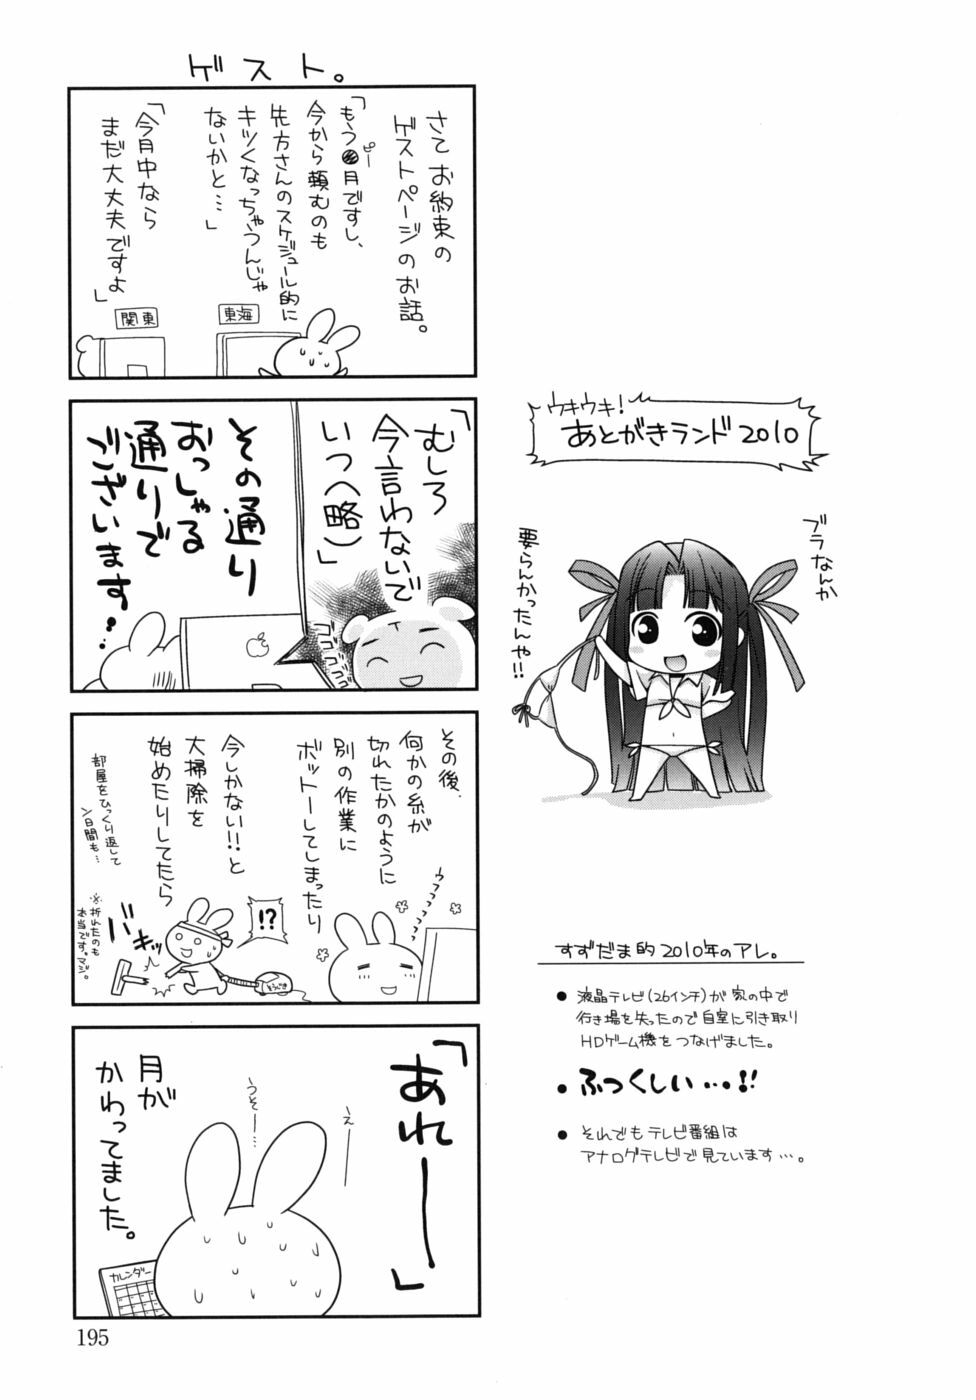 ゲスト。
さて お約束の
ゲストページのお話。
「もう●月ですし、
ピー
今から頼むのも
先方さんのスケジュール的に
キツくなっちゃうんじゃ
ないかと…」
「今月中なら
まだ大丈夫ですよ」
東海
関東
「むしろ
今言わないで
いつ(略)」
ゴゴゴゴ
その通り
おっしゃる
通りで
ございます!
その後、
何かの糸が
切れたかのように
別の作業に
ボットーしてしまったり
ウフフフフフ
今しかない!!と
大掃除を
始めたりしてたら
部屋をひっくり返して
ン日間も…
!?
バキッ
そうじき
※折れたのも
本当です。マジ。
「あれーーー」
えー
うそー…
月が
かわってました。
カレンダー
195
ウキウキ!
あとがきランド2010
ブラなんか
要らんかったんや!!
すずだま的2010年のアレ。
● 液晶テレビ(26インチ)が家の中で
行き場を失ったので自室に引き取り
HDゲーム機をつなげました。
● ふつくしい…!!
● それでもテレビ番組は
アナログテレビで見ています…。